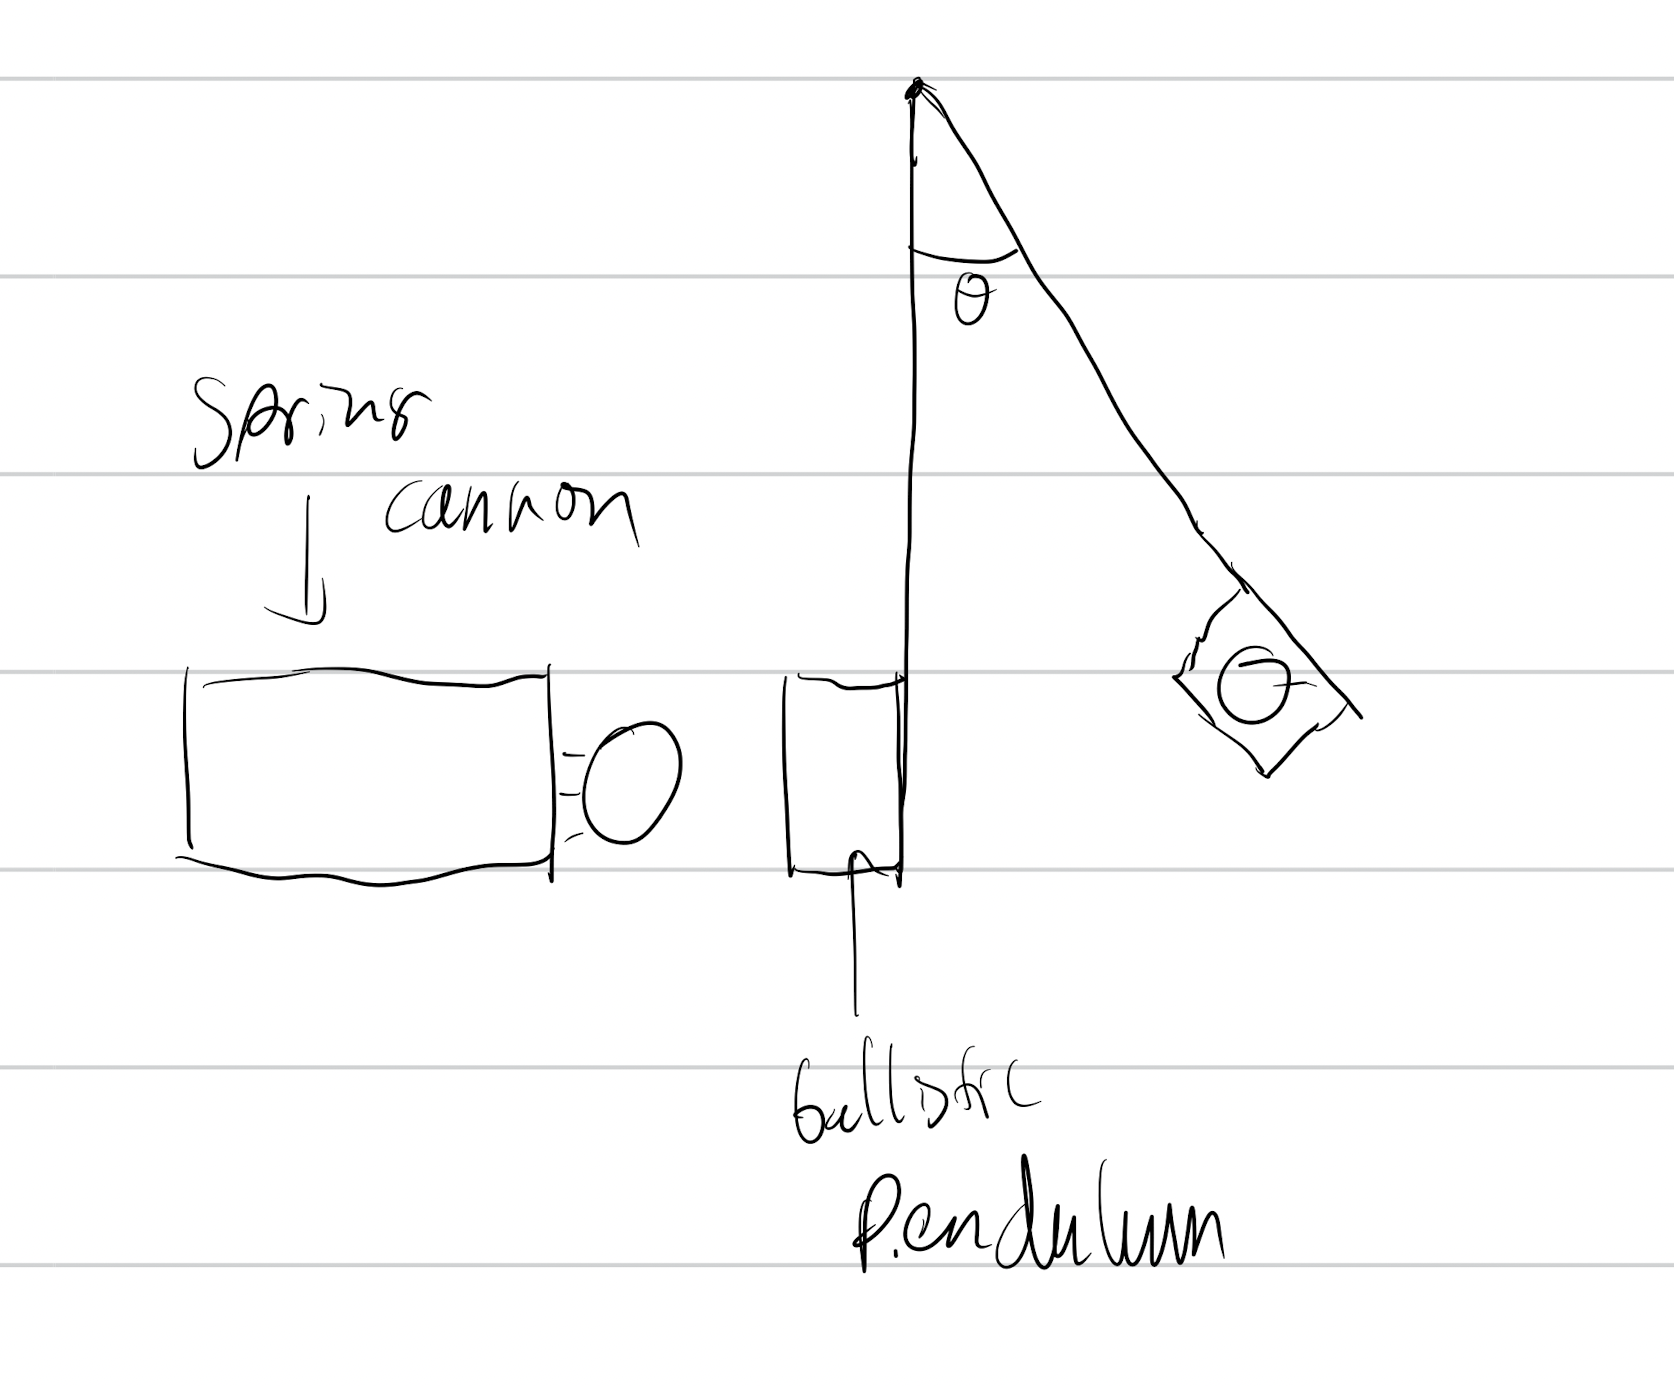 θ
Spring
cannon
ballistic
Pendulum